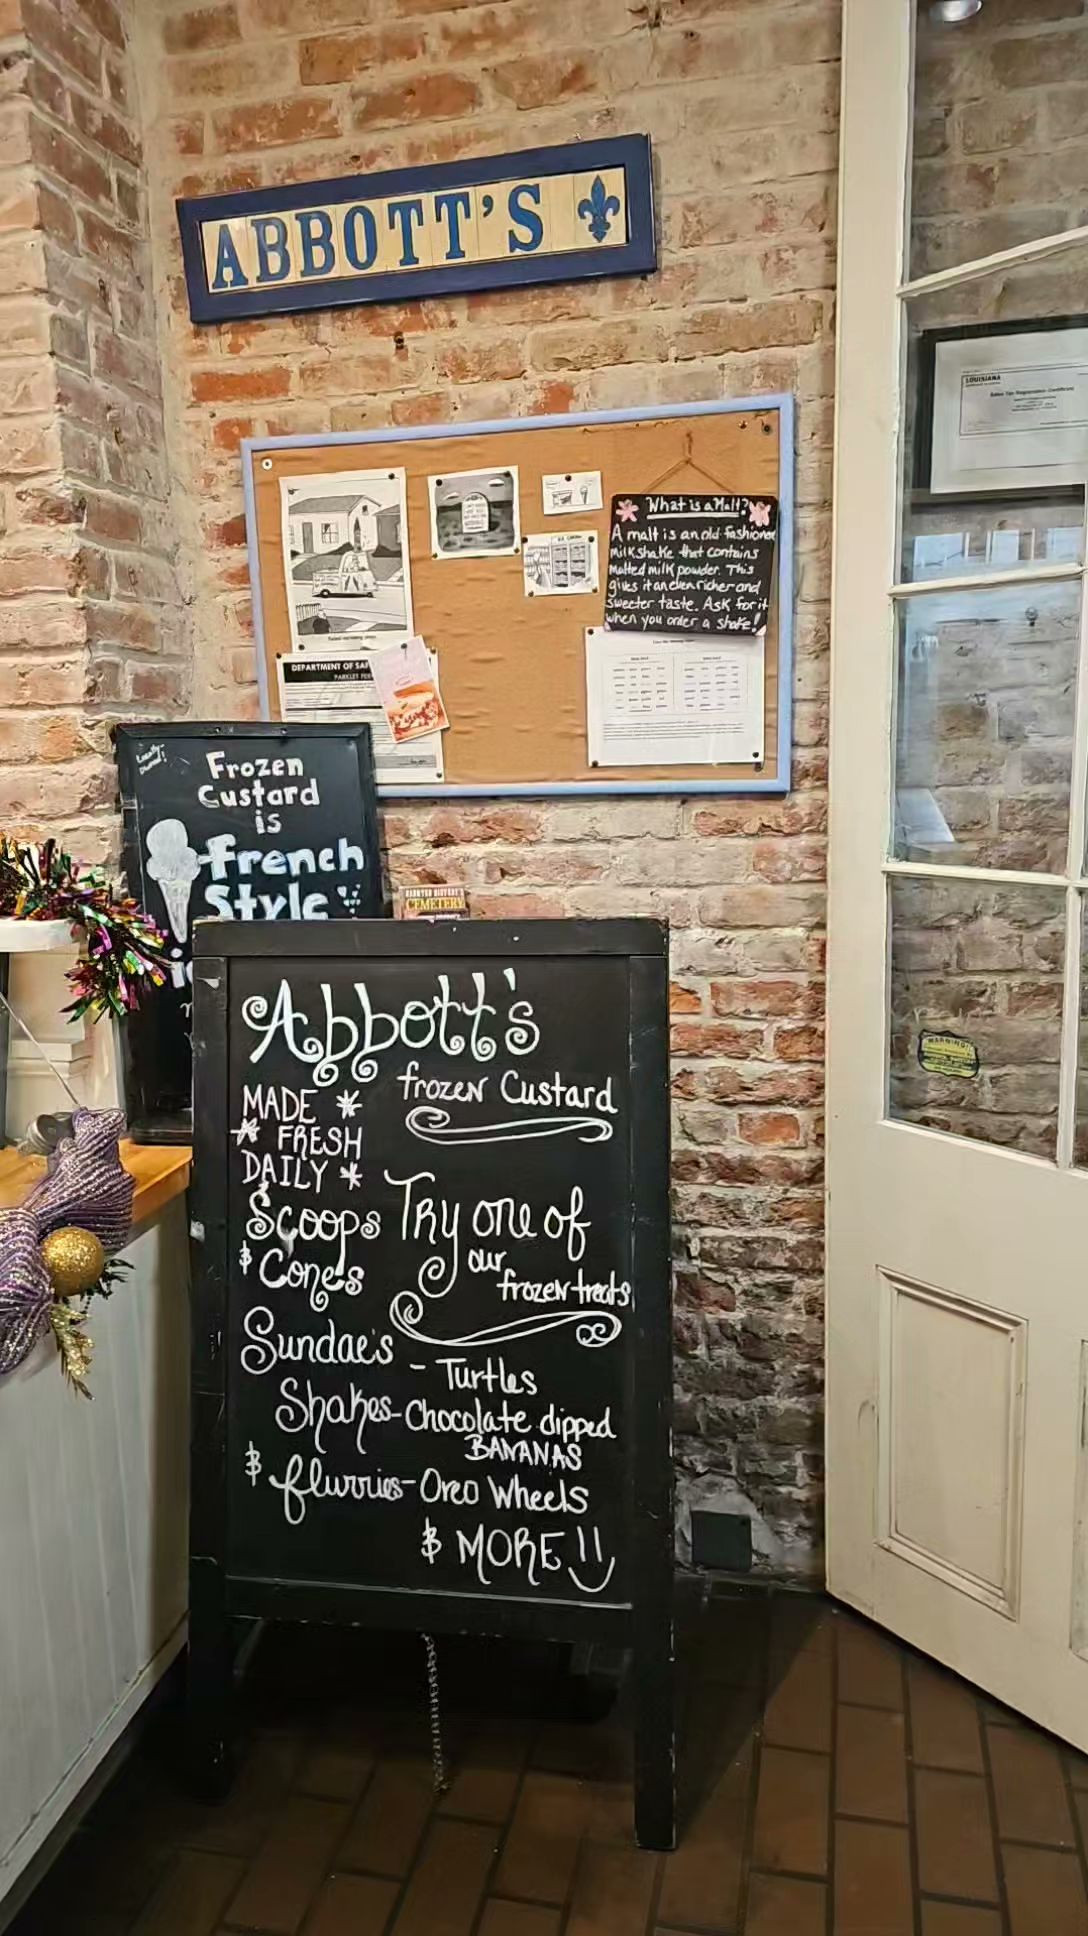 ABBOTT'S
LOUISIANA
Sales Tax Registration Certificate
What is a Malt?
A malt is an old fashioned
milkshake that contains
malted milk powder. This
gives it an even richer and
sweeter taste. Ask for it
when you order a shake!
DEPARTMENT OF SAF
PARKLET PER
Locally-
Owned!
Frozen
Custard
is
French
Style
CEMETERY
WARNING!
Abbott's
frozen Custard
MADE *
* FRESH
DAILY *
Scoops
& Cones
Try one of
our
frozen treats
Sundaes
- Turtles
Shakes - Chocolate dipped
BANANAS
& flurries - Oreo Wheels
& MORE !!